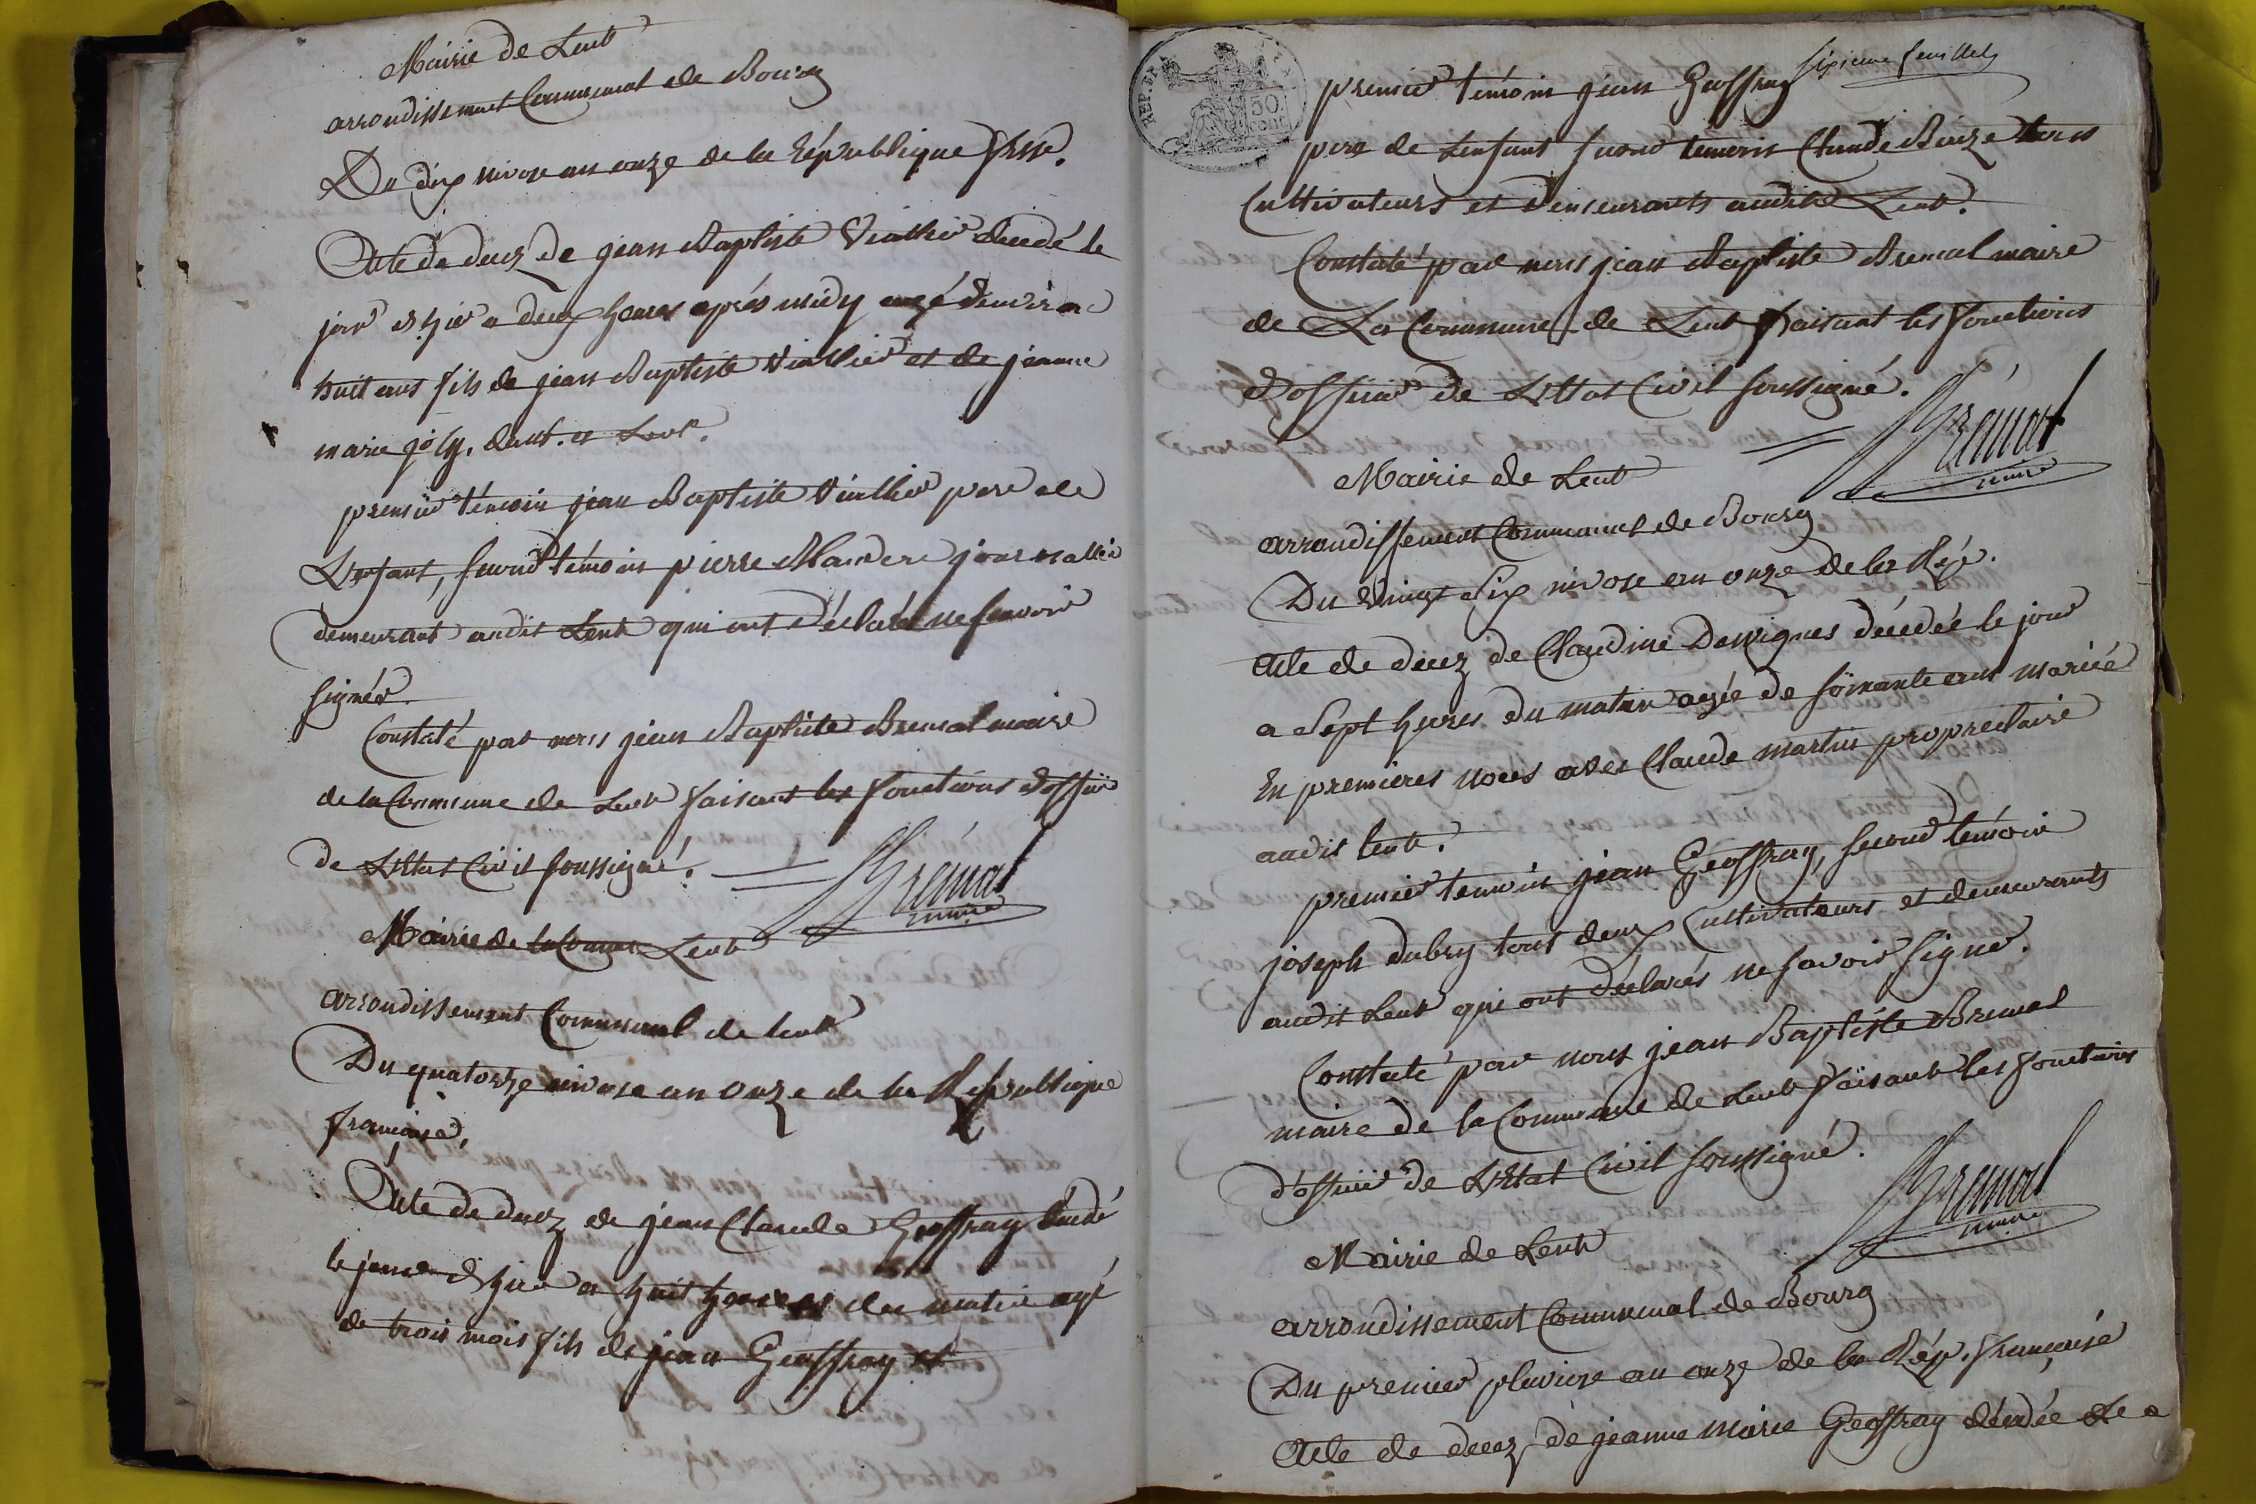 Mairie de Lent
arrondissement Communal de Bourg
Du dix nivose an onze de la République frse.
Acte de decez de jean Baptiste Viallier decedé le
jour d'hier a deux heures aprés midy agé denviron
huit ans fils de jean Baptiste Viallier et de jeanne
marie joly, dud. Lent.
premier témoin jean Baptiste Viallier pere de
L'enfant, second témoin pierre journallier
demeurant audit Lent qui ont déclaré ne savoir
signer.
Constaté par nous jean Baptiste Bremal maire
de la Commune de Lent faisant les fonctions d'officier
de L'Etat Civil soussigné. Bremal
maire
Mairie de Lent
arrondissement Communal de Lent
Du quatorze nivose an onze de la République
française,
Acte de decez de jean Claude Geoffray décédé
le jour d'hier a huit heures du matin agé
de trois mois fils de jean Geoffray et
REP. FRA.
50
CENT
sixieme feuillet
premier témoin jean Geoffray
pere de Lenfant second temoin Claude Buizé tous
Cultivateurs et demeurants audit Lent.
Constaté par nous jean Baptiste Bremal maire
de La Commune de Lent faisant les fonctions
d'officier de L'Etat Civil soussigné.
Bremal
maire
Mairie de Lent
arrondissement Communal de Bourg
Du vingt six nivose an onze de la Rép.
Acte de decez de Claudine Desvignes décédée le jour
a sept heures du matin agée de soixante ans mariée
En premieres noces avec Claude martin propriétaire
audit lent.
premier temoin jean Geoffray, second temoin
joseph dubry tous deux Cultivateurs et demeurants
audit Lent qui ont déclarés ne savoir signer.
Constaté par nous jean Baptiste Bremal
maire de la Commune de Lent faisant les fonctions
d'officier de L'Etat Civil soussigné.
Bremal
maire
Mairie de Lent
arrondissement Communal de Bourg
Du premier pluviose an onze de la Rép. française
Acte de decez de jeanne marie Geoffray décédée Le